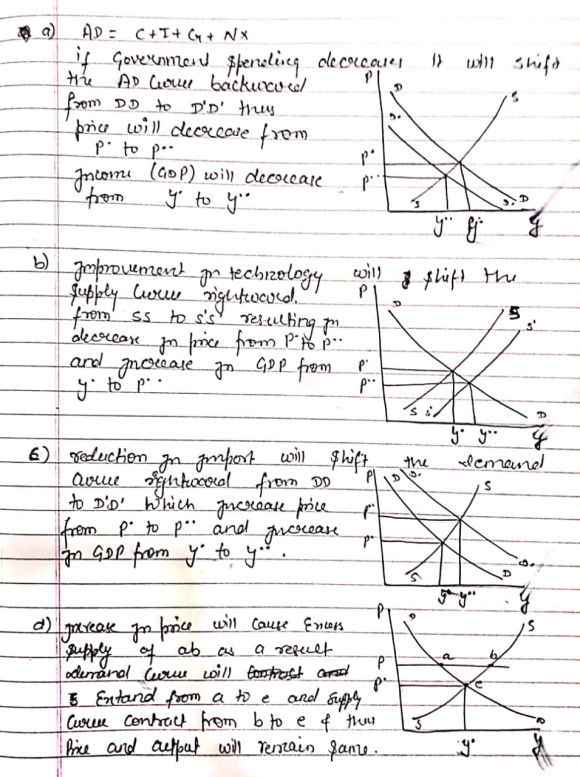 a) AD = C+I+G+NX
if Government spending decreases it will shift
the AD Curve backward
from DD to D'D' thus
price will decrease from
P• to P••
Income (GDP) will decrease
from y• to y••
P
D
D.
S
P•
P••
S
D. D
y•• y• y
b) Improvement in technology will shift the
supply curve rightward.
from SS to S'S' resulting in
decrease in price from P• to P••
and increase in GDP from
y• to P••
P
D
S
S'
P•
P••
S S' D
y• y•• y
c) reduction in import will shift the demand
curve rightward from DD
to D'D' which increase price
from P• to P•• and increase
in GDP from y• to y••.
P
D D.
S
P••
P•
S D D.
y• y•• y
d) increase in price will cause Excess
supply of ab as a result
demand curve will contract and
Extand from a to e and supply
curve contract from b to e & thus
Price and output will remain same.
P
D
S
P a b
P• e
S D
y• y